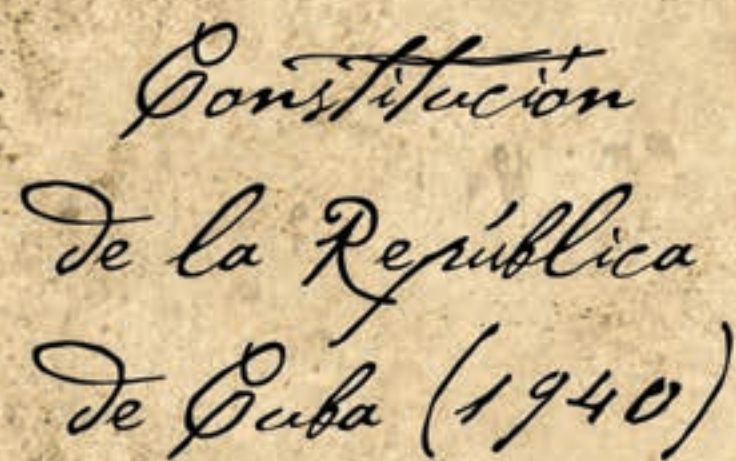 Constitución
de la República
de Cuba (1940)